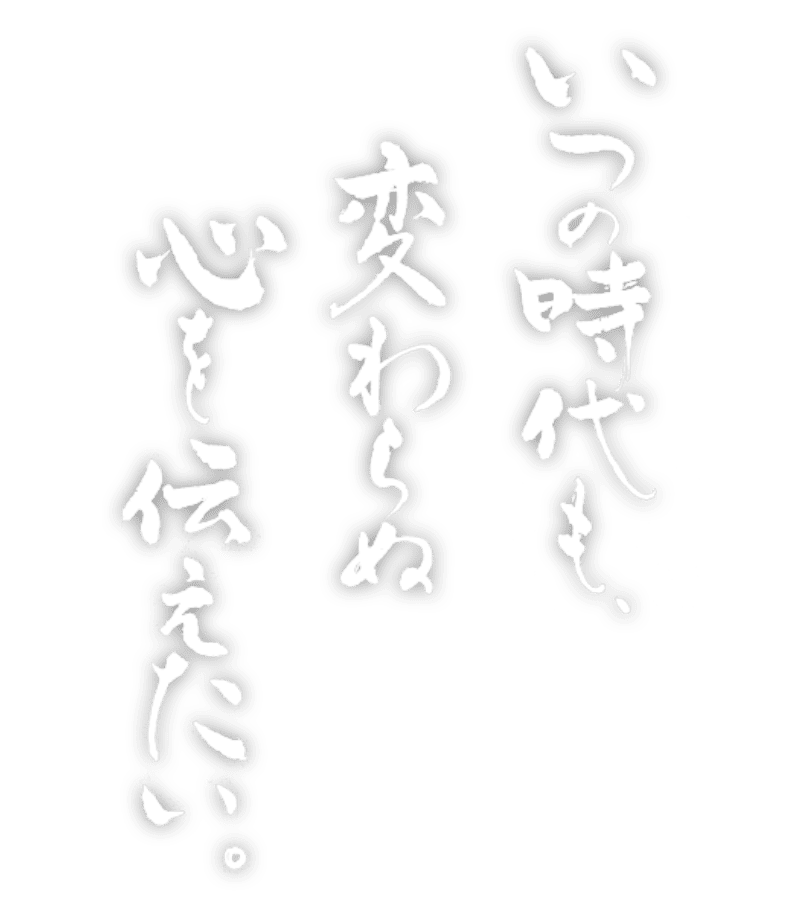 いつの時代も、
変わらぬ
心を伝えたい。